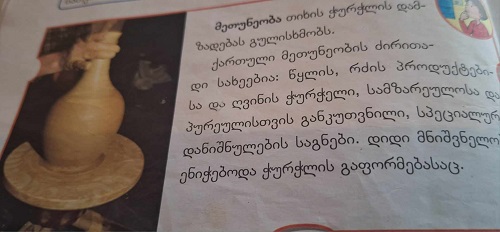 მეთუნეობა თიხის ჭურჭლის დამ-
ზადებას გულისხმობს.
ქართული მეთუნეობის ძირითა-
დი სახეებია: წყლის, რძის პროდუქტები-
სა და ღვინის ჭურჭელი, სამზარეულოსა და
პურეულისთვის განკუთვნილი, სპეციალურ
დანიშნულების საგნები. დიდი მნიშვნელო
ენიჭებოდა ჭურჭლის გაფორმებასაც.